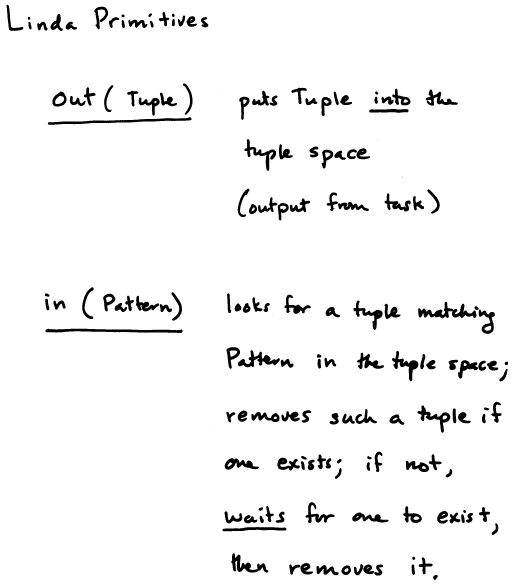 Linda Primitives
out ( Tuple ) puts Tuple into the
tuple space
(output from task)
in ( Pattern) looks for a tuple matching
Pattern in the tuple space;
removes such a tuple if
one exists; if not,
waits for one to exist,
then removes it.